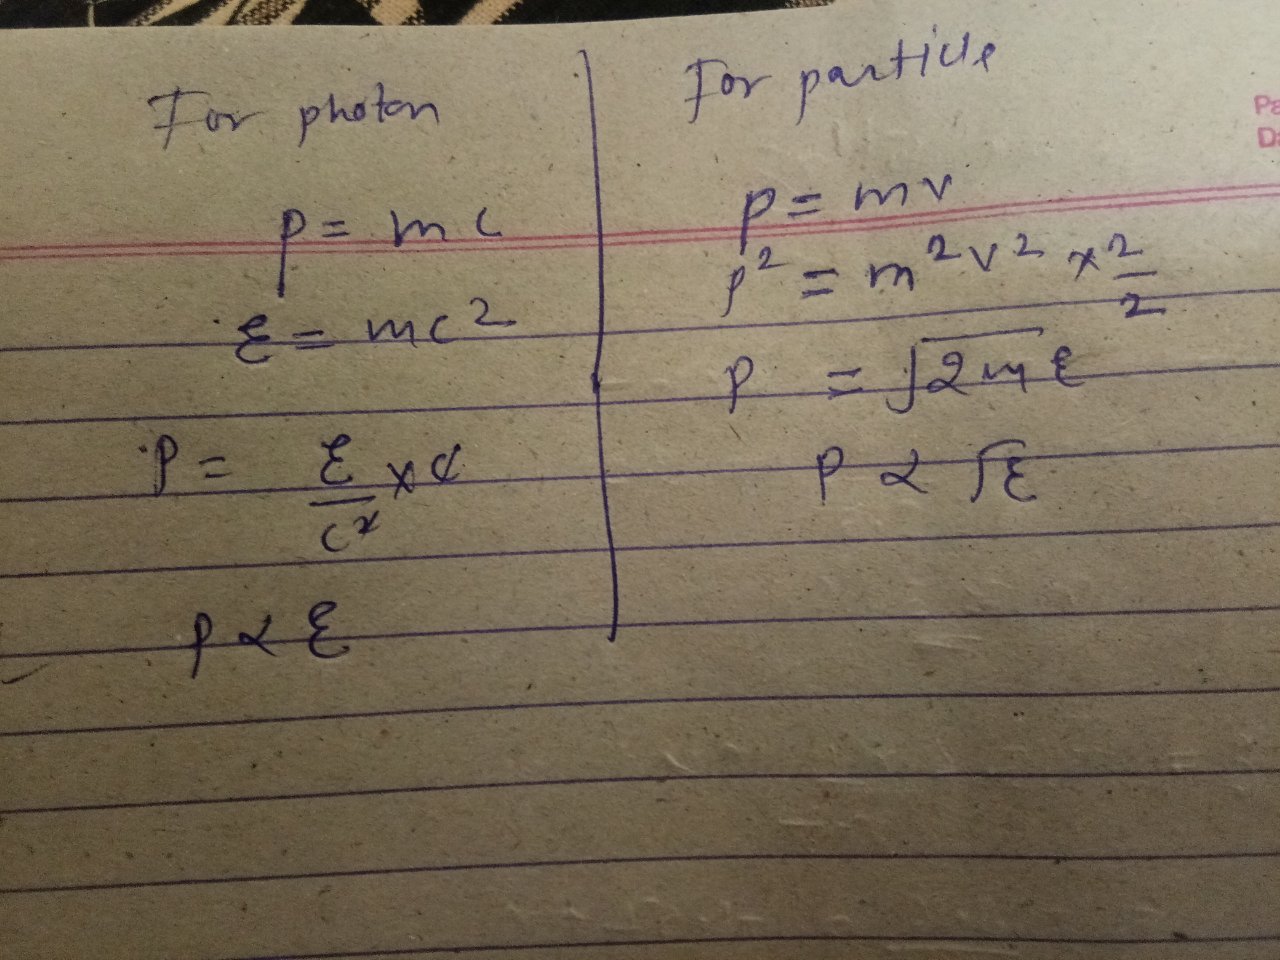 For photon
p = mc
ε = mc²
p = ε/c² × c
p ∝ ε
For particle
p = mv
p² = m²v² × 2/2
p = √2mε
p ∝ √ε